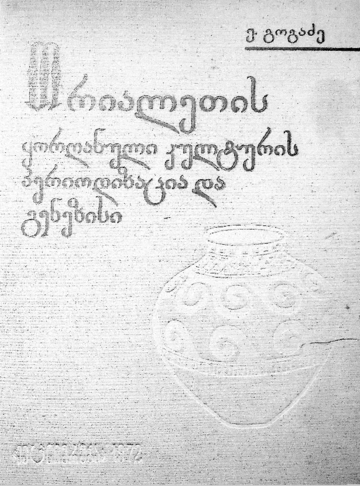 ე. გოგაძე
თრიალეთის
ყორღანული კულტურის
პერიოდიზაცია და
გენეზისი
1972